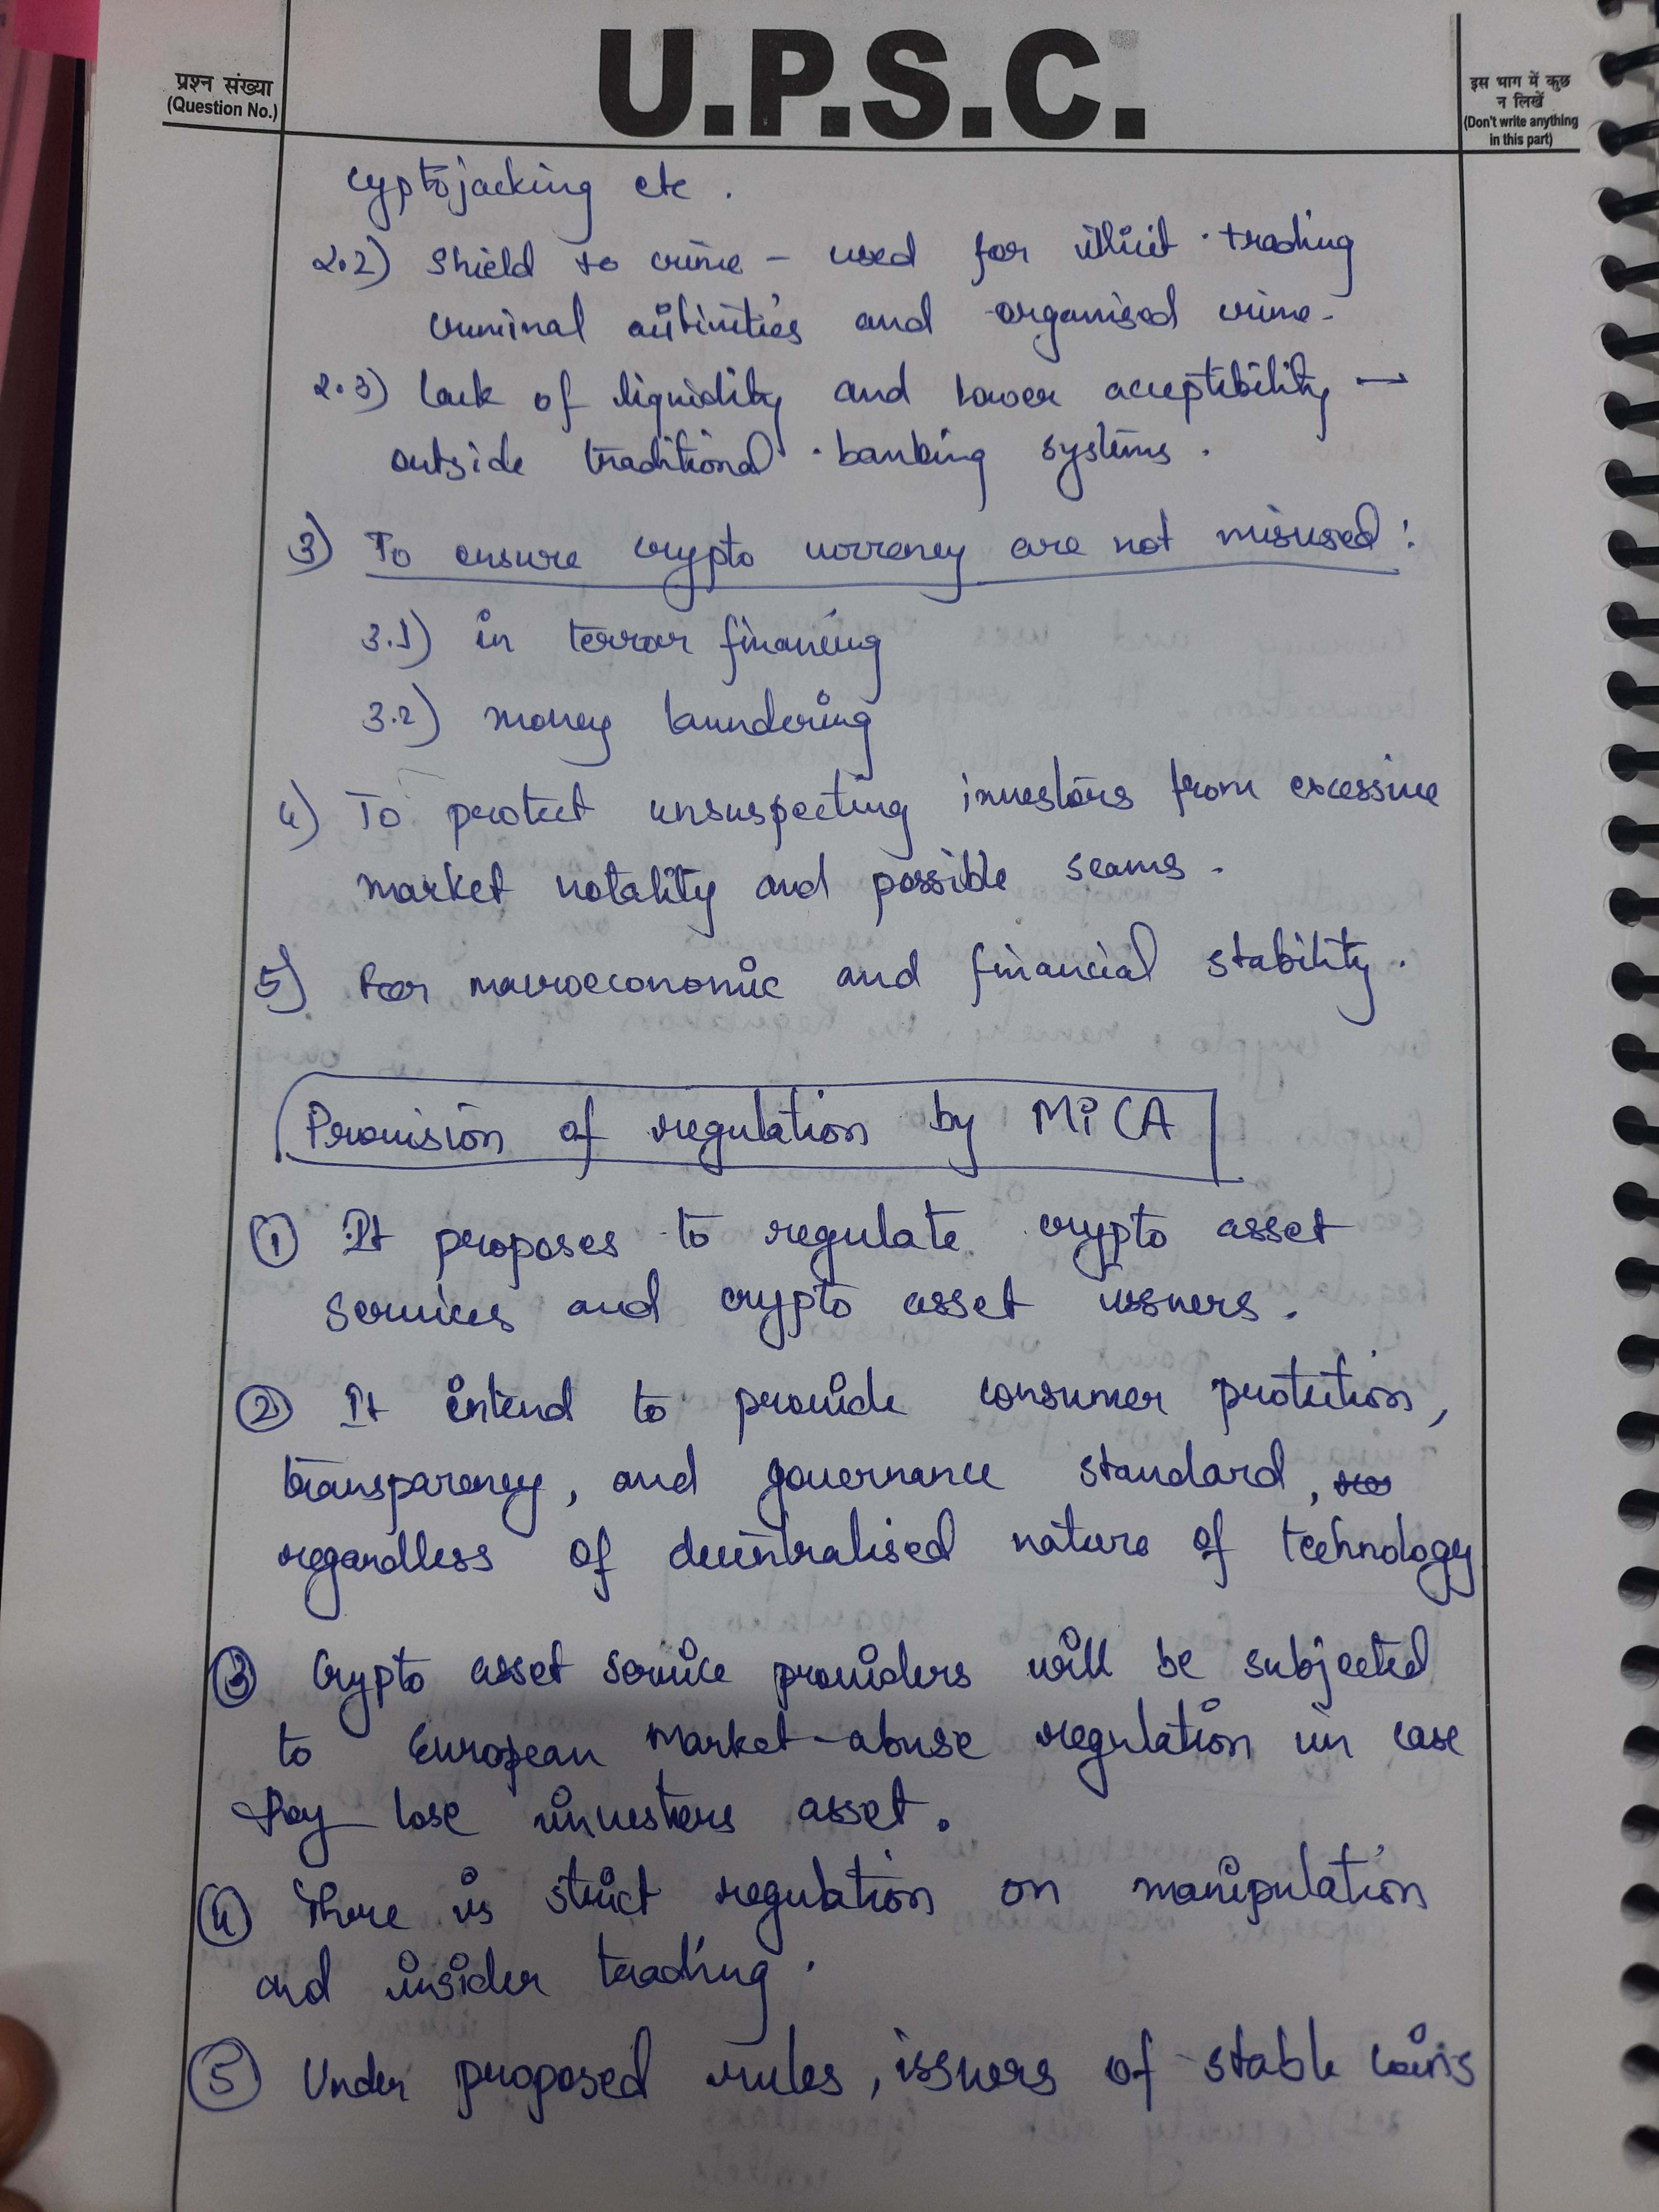 प्रश्न संख्या
(Question No.)
U.P.S.C.
इस भाग में कुछ
न लिखें
(Don't write anything
in this part)
cyptojacking etc.
2.2) Shield to crime – used for illicit trading
criminal activities and organised crime.
2.3) lack of liquidity and lower acceptibility →
outside traditional banking systems.
3) To ensure crypto currency are not misused:
3.1) in terror financing
3.2) money laundering
4) To protect unsuspecting investors from excessive
market votality and possible scams.
5) For macroeconomic and financial stability.
Provision of regulation by MiCA
① It proposes to regulate crypto asset
services and crypto asset issuers.
② It intend to provide consumer protection,
transparency, and governance standard,
regardless of decentralised nature of technology
③ Crypto asset service providers will be subjected
to European Market-abuse regulation in case
they lose investors asset.
④ There is strict regulation on manipulation
and insider trading.
⑤ Under proposed rules, issuers of stable coins